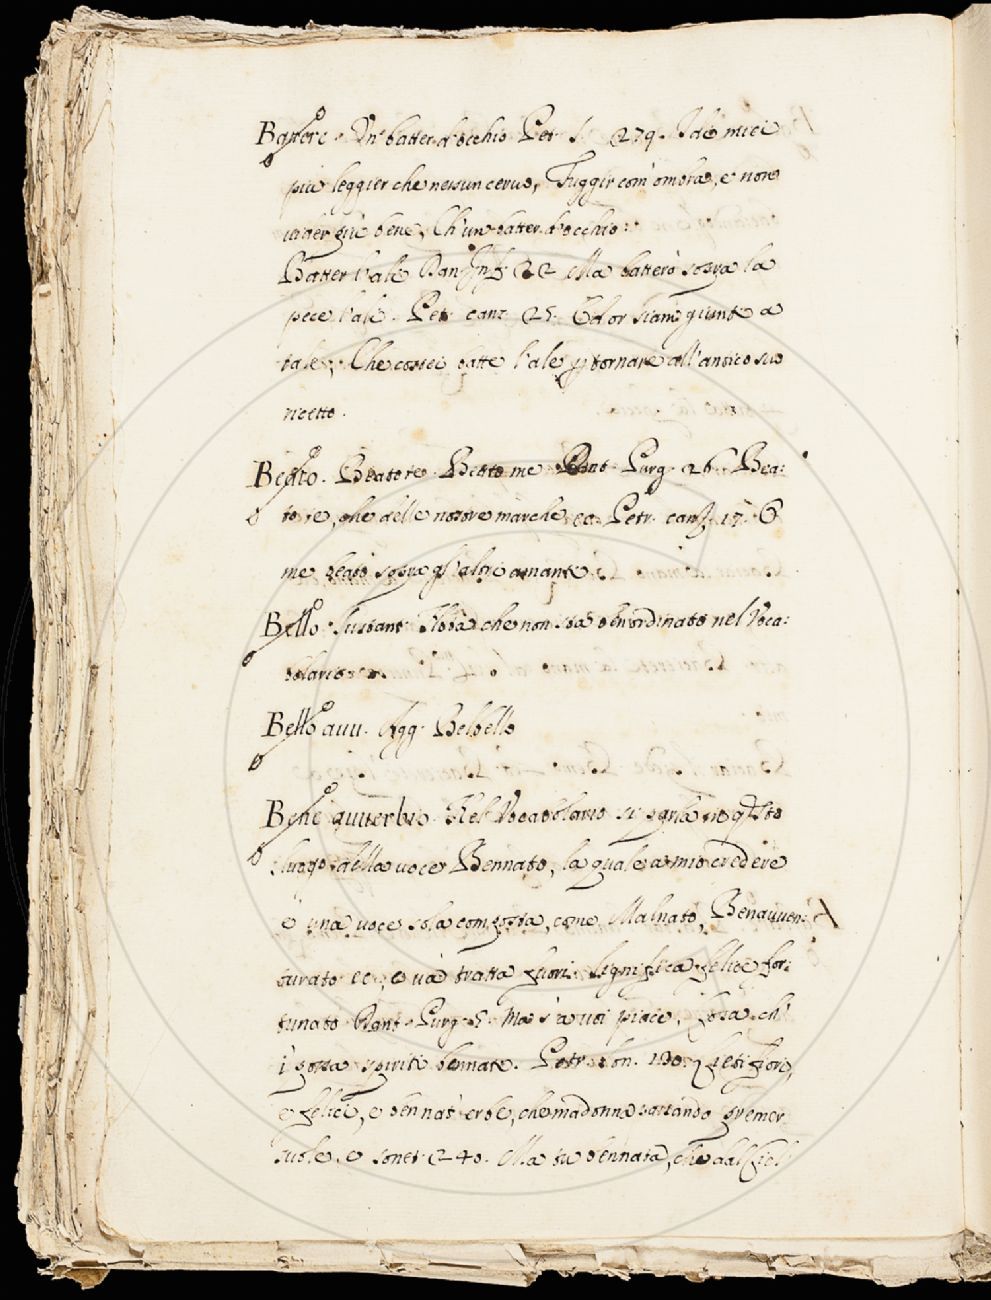 Battere. Un' batter d'occhio Pet. s. 279. I dì miei
più leggier che nessun cervo, Fuggir com' ombra, e non
vider più bene, Ch'un batter d'occhio:
Batter l'ale Dan. Inf. 22 Ma batterò sopra la
pece l'ali. Pet. canz. 25. Ed or siam giunte a
tale, Che costei batte l'ale p tornare all'antico suo
ricetto.
Beato. Beato te Beato me Dant. Purg. 26. Bea:
to te, che delle nostre marche, ec. Petr. canz. 17. O
me beato sopra gl'altri amanti.
Bello. Sustant. Roba che non sta ben ordinato nel Voca:
bolario
Bello avv. Agg. Belbello
Bene avverbio. Nel Vocabolario si parla in qsto
luogo della voce Bennato, la quale a mio credere
è una voce sola composta, come Malnato, Benavven:
turato ec, e và tratta fuori. Significa felice for:
tunato Dant. Purg. 5. Ma s'a voi piace, cosa ch'
i' possa spiriti bennati. Petr. son. 130. Lieti fiori,
e felici, e bennat' erbe, che madonna passando premer
suole. e sonet. 240. Ma tu bennata, che dal Ciel